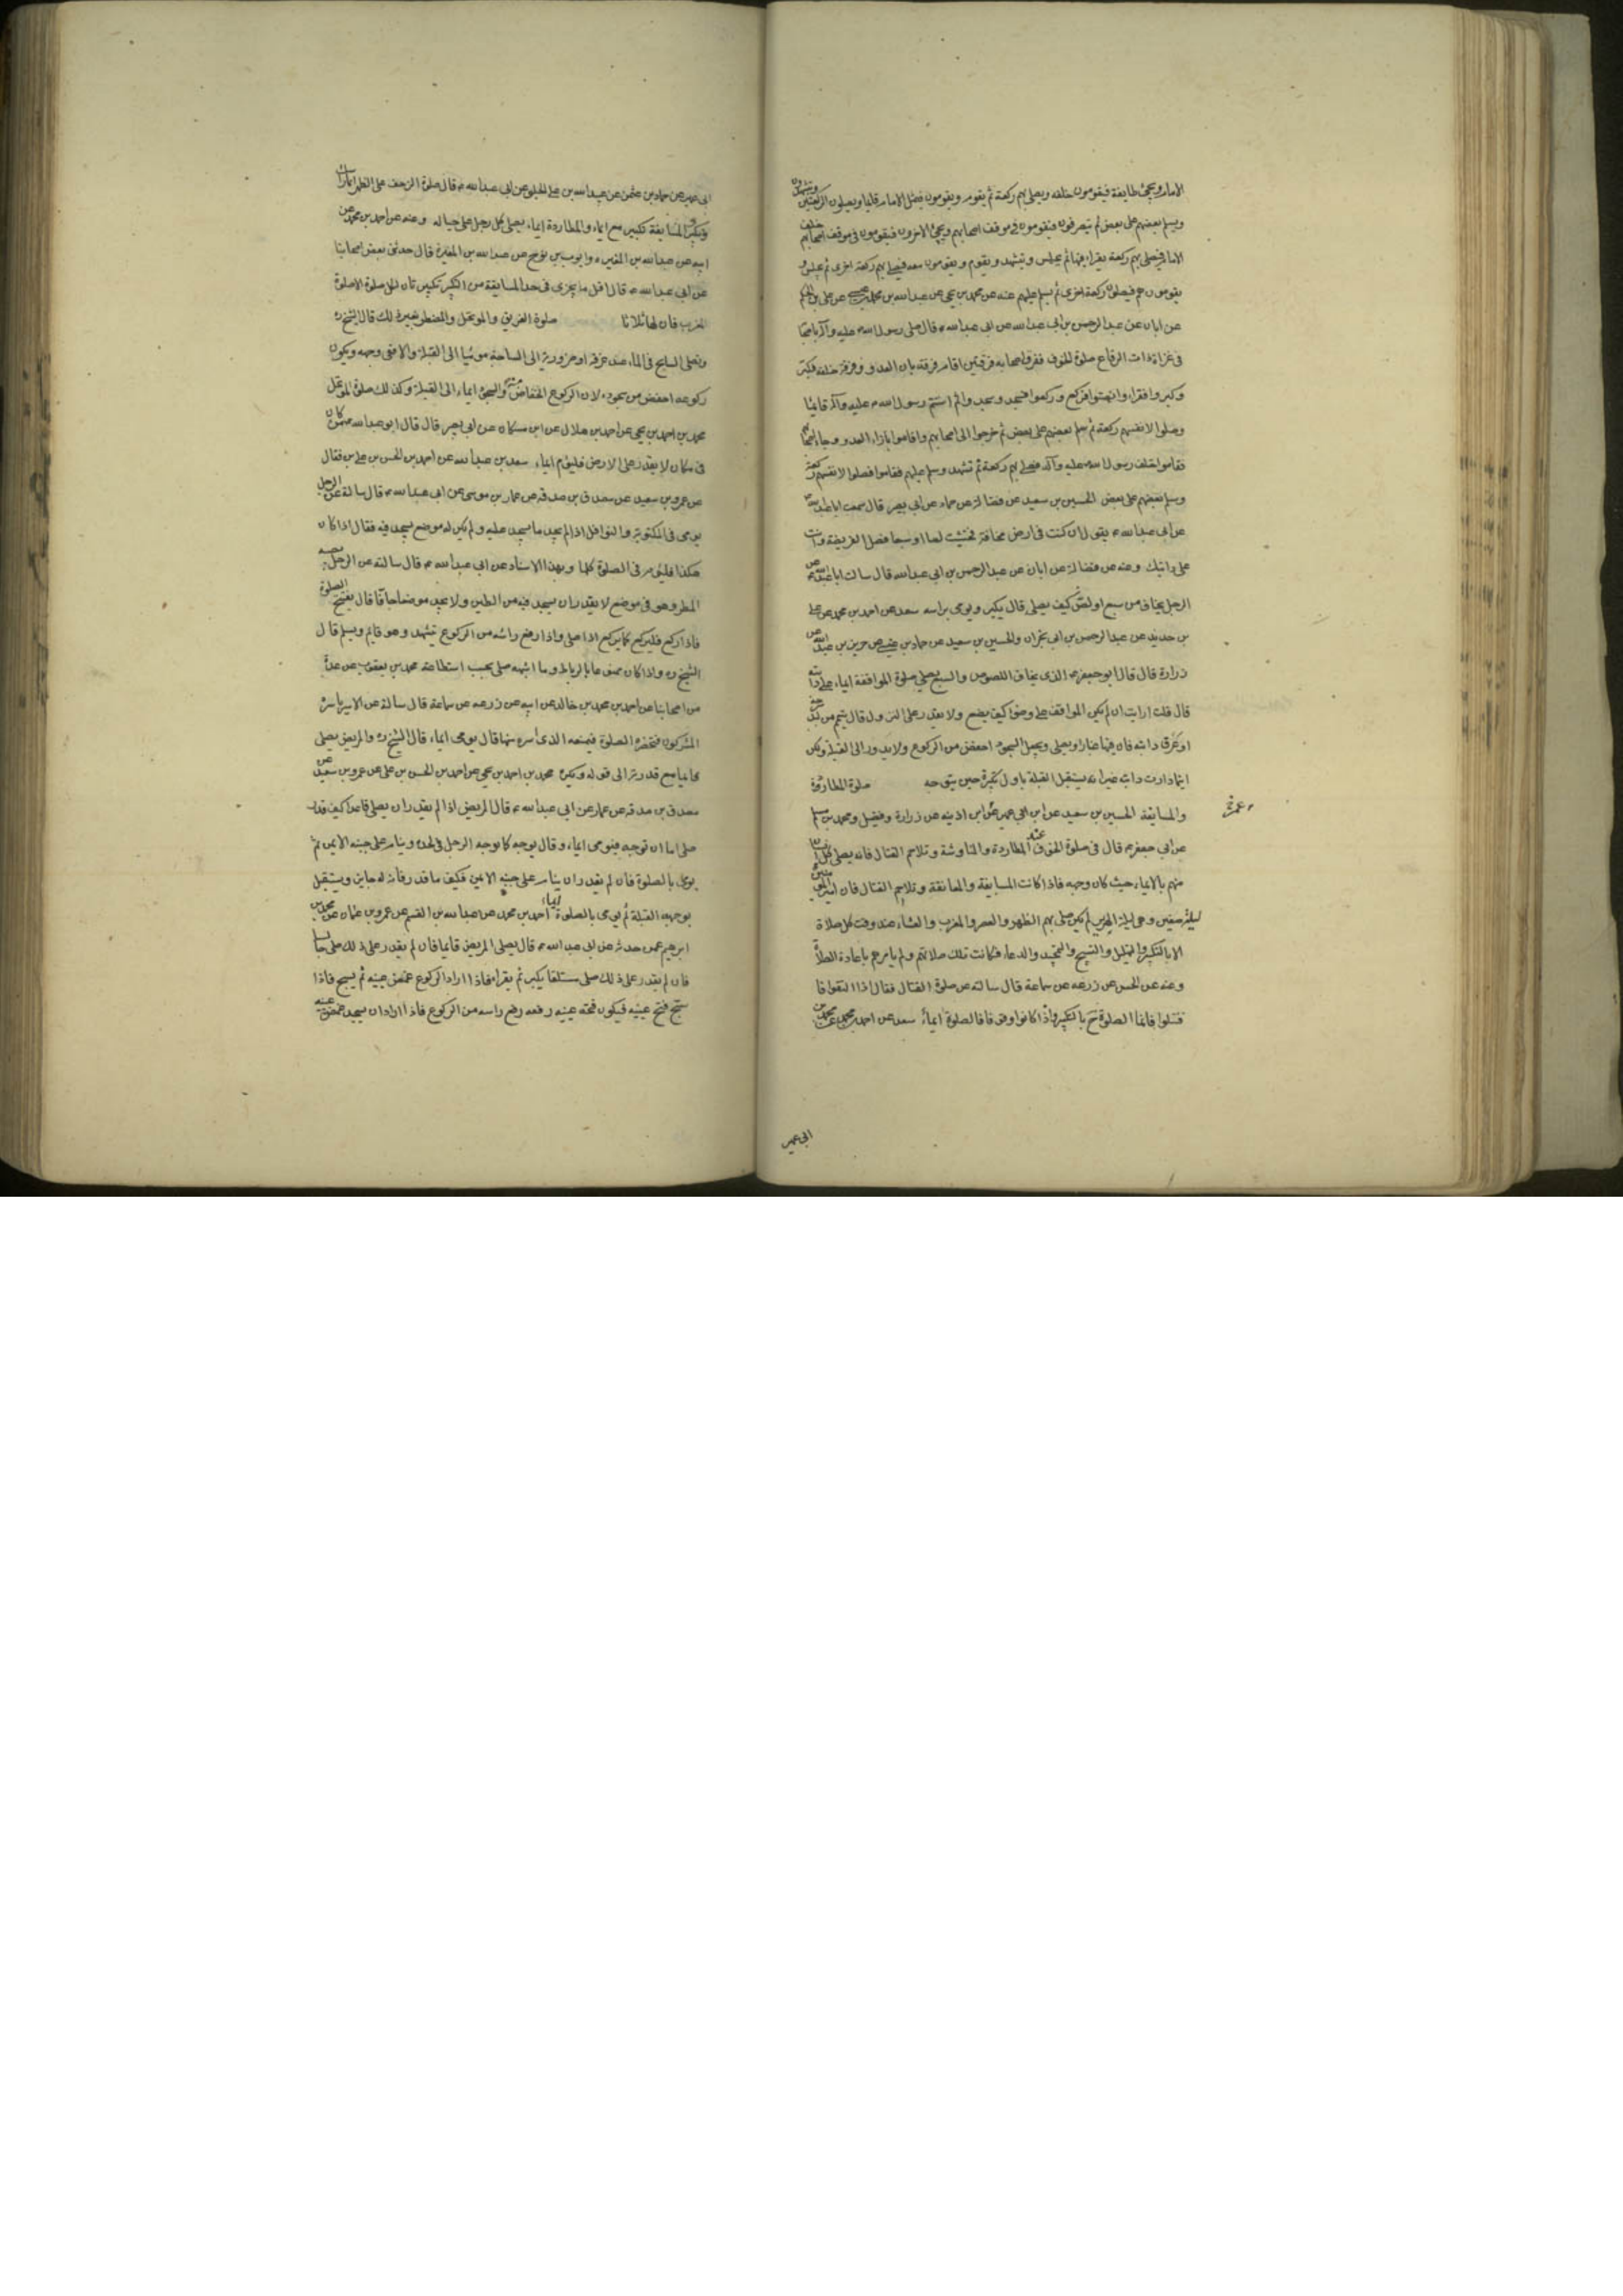 الامام ويجئ طايفة فيقومون خلفه ويصلى بهم ركعة ثم يقوم ويقومون فيمثل الامام قايما ويصلون الركعتين ويتشهدون
ويسلم بعضهم على بعض ثم ينصرفون فيقومون فى موقف اصحابهم ويجئ الاخرون فيقومون فى موقف اصحابهم خلف
الامام فيصلى بهم ركعة يقرا فيها ثم يجلس ويتشهد ويقوم ويقومون معه فيصلى بهم ركعة اخرى ثم يجلس و
يقومون هم فيصلون ركعة اخرى ثم يسلم عليهم عنه عن محمد بن يحيى عن عبدالله بن محمد بن عيسى عن على بن الحكم
عن ابان عن عبدالرحمن بن ابى عبدالله عن ابى عبدالله ع قال صلى رسول الله ص عليه وآله باصحابه
فى غزاة ذات الرقاع صلوة الخوف ففرق اصحابه فرقتين اقام فرقة بازاء العدو وفرقة خلفه فكبر
وكبروا فقرا وانصتوا فركع وركعوا فسجد وسجدوا ثم استتم رسول الله ص عليه وآله قائما
وصلوا لانفسهم ركعة ثم سلم بعضهم على بعض ثم خرجوا الى اصحابهم واقاموا بازاء العدو وجاء اصحابهم
فقاموا خلف رسول الله عليه وآله فصلى بهم ركعة ثم تشهد وسلم عليهم فقاموا فصلوا لانفسهم ركعة
وسلم بعضهم على بعض الحسين بن سعيد عن فضالة عن حماد عن ابى بصير قال سمعت ابا عبدالله
عن ابى عبدالله ع يقول ان كنت فى ارض مخافة فخشيت لصا او سبعا فصل الفريضة وانت
على دابتك وعنه عن فضالة عن ابان عن عبدالرحمن بن ابى عبدالله قال سالت ابا عبدالله ع عن
الرجل يخاف من سبع او لص كيف يصلى قال يكبر ويومى براسه سعد عن احمد بن محمد عن على
بن حديد عن عبدالرحمن بن ابى نجران والحسين بن سعيد عن حماد بن عيسى عن حريز بن عبدالله عن
زرارة قال قال ابو جعفر ع الذى يخاف اللصوص والسبع يصلى صلوة المواقفة ايماء على دابته
قال قلت ارايت ان لم يكن المواقف على وضوء كيف يصنع ولا يقدر على النزول قال تيمم من لبد
او عرف دابته فان فيها غبارا ويصلى ويجعل السجود اخفض من الركوع ولا يدور الى القبلة ولكن
اينما دارت دابته غير انه يستقبل القبلة باول تكبيرة حين يتوجه صلوة المطاردة
والمسايفة الحسين بن سعيد عن ابن ابى عمير عن ابن اذينه عن زرارة وفضيل ومحمد بن مسلم
عن ابى جعفر ع قال فى صلوة الخوف عند المطاردة والمناوشة وتلاحم القتال فانه يصلى كل انسان
منهم بالايماء حيث كان وجهه فاذا كانت المسايفة والمعانقة وتلاحم القتال فان اميرالمؤمنين
ليلة صفين وهى ليلة الهرير لم يكن صلى بهم الظهر والعصر والمغرب والعشاء عند وقت كل صلاة
الا بالتكبير والتهليل والتسبيح والتحميد والدعاء فكانت تلك صلاتهم ولم يامرهم باعادة الصلاة
وعنه عن الحسن عن زرعه عن سماعة قال سالته عن صلوة القتال فقال اذا التقوا فا
قتتلوا فانما الصلوة ح بالتكبير واذا كانوا وقوفا فالصلوة ايماء سعد عن احمد بن محمد عن محمد بن
ابى عمير
ابى عمير عن حماد بن عثمن عن عبيدالله بن على الحلبى عن ابى عبدالله ع قال صلوة الزحف على الظهر ايماء براسك
وتكبير والمسايفة تكبير مع ايماء والمطاردة ايماء يصلى كل رجل على حياله وعنه عن احمد بن محمد عن
ابيه عن عبدالله بن المغيره وايوب بن نوح عن عبدالله بن المغيرة قال حدثنى بعض اصحابنا
عن ابى عبدالله ع قال اقل ما يجزى فى حد المسايفة من التكبير تكبيرتان لكل صلوة الا صلوة
المغرب فان لها ثلاثا صلوة الغريق والموتحل والمضطر بغير ذلك قال الشيخ ره
ويصلى السابح فى الماء عند غرقه او ضرورته الى السباحة مومئيا الى القبلة والا ففى وجهه ويكون
ركوعه اخفض من سجوده لان الركوع انخفاض منه والسجود ايماء الى القبلة وكذلك صلوة الموتحل
محمد بن احمد بن يحيى عن احمد بن هلال عن ابن مسكان عن ابى بصير قال قال ابو عبدالله ع من كان
فى مكان لا يقدر على الارض فليوم ايماء سعد بن عبدالله عن احمد بن الحسن بن على بن فضال
عن عمرو بن سعيد عن مصدق بن صدقه عن عمار بن موسى عن ابى عبدالله ع قال سالته عن الرجل
يومى فى المكتوبة والنوافل اذا لم يجد ما يسجد عليه ولم يكن له موضع يسجد فيه فقال اذا كان
هكذا فليوم فى الصلوة كلها وبهذا الاسناد عن ابى عبدالله ع قال سالته عن الرجل يصيبه
المطر وهو فى موضع لا يقدر ان يسجد فيه من الطين ولا يجد موضعا جافا قال يفتتح الصلوة
فاذا ركع فليركع كما يركع اذا صلى واذا رفع راسه من الركوع يتشهد وهو قايم ويسلم قال
الشيخ ره واذا كان ممنوعا بالرباط وما اشبهه صلى بحسب استطاعته محمد بن يعقوب عن عدة
من اصحابنا عن احمد بن محمد بن خالد عن ابيه عن زرعه عن سماعة قال سالته عن الاسير ياسره
المشركون فتحضره الصلوة فيمنعه الذى اسره منها قال يومى ايماء قال الشيخ ره والمريض يصلى
قايما مع قدرته الى قوله ويكره محمد بن احمد بن يحيى عن احمد بن الحسن بن على عن عمرو بن سعيد عن
مصدق بن صدقه عن عمار عن ابى عبدالله ع قال المريض اذا لم يقدر ان يصلى قاعدا كيف قدر
صلى اما ان توجه فيومى ايماء وقال يوجه كما يوجه الرجل فى لحده وينام على جنبه الايمن ثم
يومى بالصلوة فان لم يقدر ان ينام على جنبه الايمن فكيف ما قدر فانه له جايز ويستقبل
بوجهه القبلة ثم يومى بالصلوة ايماء احمد بن محمد عن عبدالله بن القسم عن عمرو بن عثمان عن محمد بن
ابرهيم عمن حدثه عن ابى عبدالله ع قال يصلى المريض قايما فان لم يقدر على ذلك صلى جالسا
فان لم يقدر على ذلك صلى مستلقيا يكبر ثم يقرا فاذا اراد الركوع غمض عينيه ثم يسبح فاذا
سبح فتح عينيه فيكون فتحه عينيه رفعه رفع راسه من الركوع فاذا اراد ان يسجد غمض عينيه